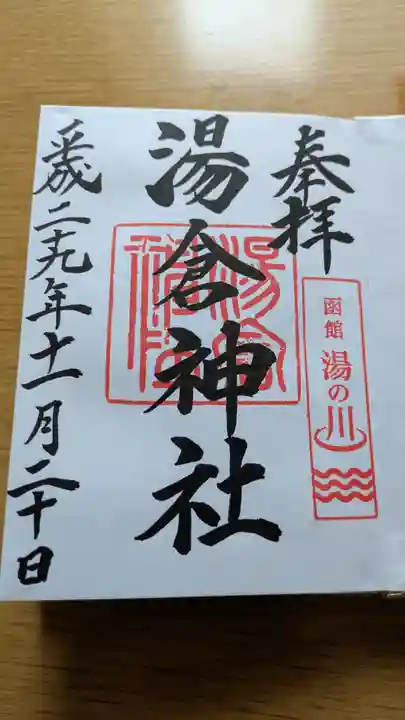 奉拝
函館 湯の川
湯倉神社
湯倉神社
平成二十九年十一月二十日